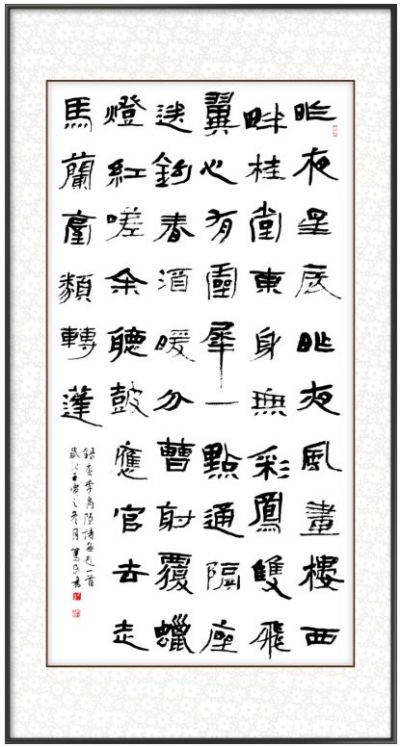 昨夜星辰昨夜風畫樓西
畔桂堂東身無彩鳳雙飛
翼心有靈犀一點通隔座
送鉤春酒暖分曹射覆蠟
燈紅嗟余聽鼓應官去走
馬蘭臺類轉蓬
錄唐李商隱詩無題一首
歲次壬寅之冬月